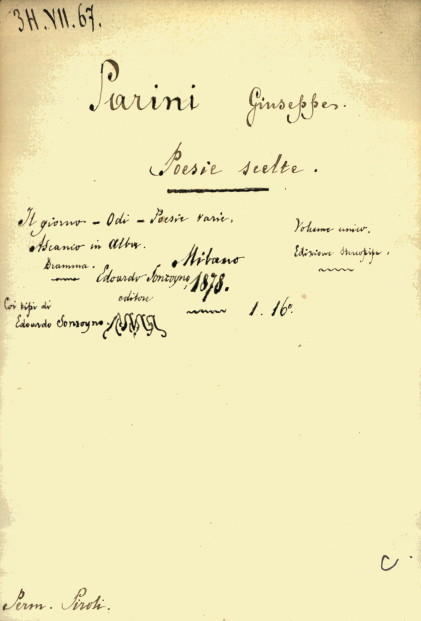 3H.VII.67.
Parini Giuseppe.
Poesie scelte.
Il giorno - Odi - Poesie varie.
Ascanio in Alba.
Dramma.
Volume unico.
Edizione stereotipa.
Milano
Edoardo Sonzogno,
editore
1878.
Coi tipi di
Edoardo Sonzogno.
1. 16º.
C
Perm. Piroli.